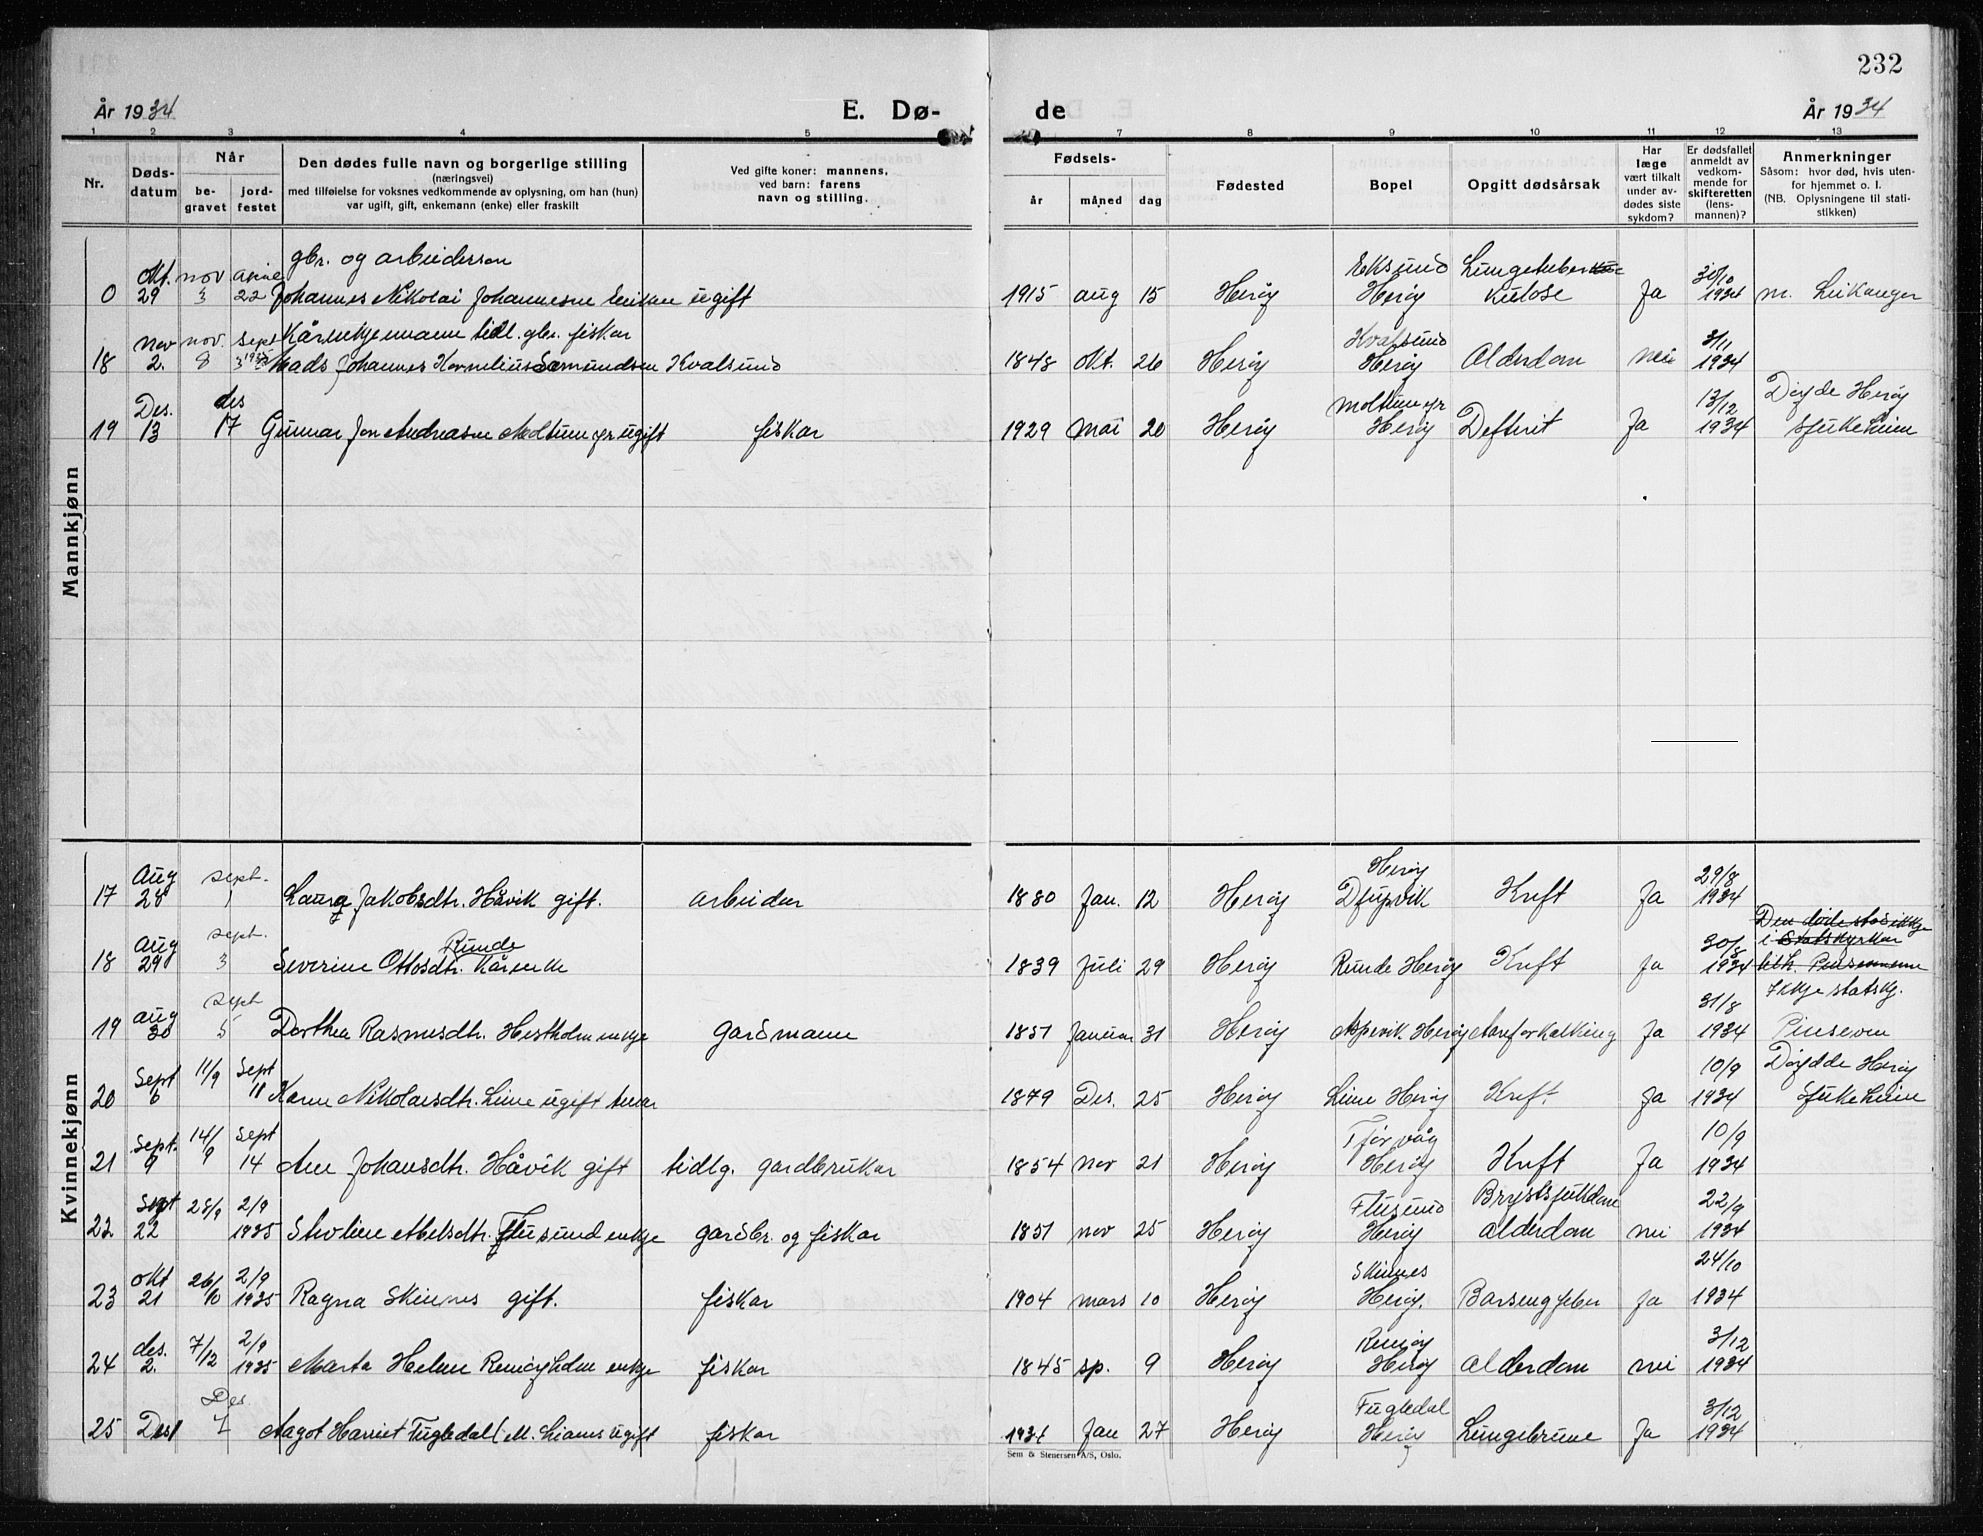 232
År 1934 E. Dø- de År 1934
1 2 3 4 5 7 8 9 10 11 12 13
Nr. Døds-datum Når be-gravet jord-festet Den dødes fulle navn og borgerlige stilling (næringsvei) med tilføielse for voksnes vedkommende av oplysning, om han (hun) var ugift, gift, enkemann (enke) eller fraskilt Ved gifte koner: mannens, ved barn: farens navn og stilling. Fødsels- år måned dag Fødested Bopel Opgitt dødsårsak Har læge vært tilkalt under av-dødes siste sykdom? Er dødsfallet anmeldt av vedkom-mende for skifteretten (lens-mannen)? Anmerkninger Såsom: hvor død, hvis uten-for hjemmet o. l. (NB. Oplysningene til stati-stikken)
Mannkjønn
gbr. og arbeiderson Eksund
0 Okt. 29 nov 3 22 Johannes Nikolai ugift 1915 aug 15 Herøy Herøy kulose Ja 30/10 1934 m. Leikanger
Kårenkjemann tidl. gbr. fiskar Kvalsund
18 nov 2. nov. 8 sept Mads Johannes Kornelius Sæmundsen Kvalsund 1848 Okt. 26 Herøy Herøy Alderdom nei 3/11 1934
19 Des. 13 des 17 Gunnar Jon Andreasen ugift fiskar 1929 mai 20 Herøy Herøy Defterit Ja 13/12 1934 Døyde Herøy sjukeheim
Kvinnekjønn
17 Aug 28 sept. 1 Laura Jakobsdtr. Håvik gift. arbeider 1880 Jan. 12 Herøy Djupvik Herøy Kreft Ja 29/8 1934
18 Aug 29 sept. 3 Severine Ottosdtr. Runde 1839 Juli 29 Herøy Runde Herøy Kreft Ja 30/8 1934 Den døde stod ikkje i Statskyrkja
19 aug 30 sept 5 Dorthea Rasmusdtr. Hestholm enkje gardmann 1851 Januar 31 Herøy Aspevik Herøy Aareforkalking Ja 31/8 1934 Ikkje statskj. Pinseven
20 Sept 6 11/9 Sept 11 Karen Nikolaisdtr. Leine ugift 1879 Des. 25 Herøy Leine Herøy Kreft Ja 10/9 1934 Døydde Herøy Sjukeheim
21 Sept. 9 14/9 Sept 14 Ane Johansdtr. Håvik gift tidlg. gardbrukar 1854 nov 21 Herøy Tjørvåg Herøy Kreft Ja 10/9 1934
22 Sept 22 28/9 2/9 1935 Abelsdtr. Flusund enkje gardbr. og fiskar 1851 nov 25 Herøy Flusund Herøy Brystsjukdom alderdom nei 22/9 1934
23 okt 21 26/10 2/9 1935 Ragna Skinnes gift. fiskar 1904 mars 10 Herøy Skinnes Herøy. Barsengfeber ja 24/10 1934
24 des. 2. 7/12 2/9 1935 Marta Helene Remøyholm enkje fiskar 1845 sp. 9 Herøy Remøy Herøy alderdom nei 3/12 1934
25 Des 1 Des 7 Aagot Harriet Fugledal ugift fiskar 1934 Jan 27 Herøy Fugledal Herøy Lungebrune Ja 3/12 1934
Sem & Stenersen A/S, Oslo.